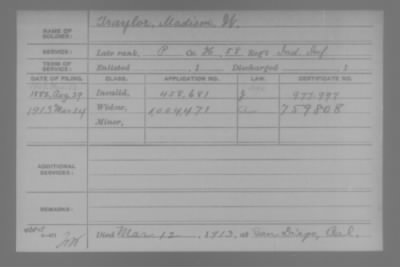 Traylor, Madison W.
NAME OF SOLDIER:
SERVICE: Late rank, P Co. H, 58 Reg't Ind. Inf.
TERM OF SERVICE: Enlisted , 1 Discharged , 1
DATE OF FILING. CLASS. APPLICATION NO. LAW. CERTIFICATE NO.
1882, Aug. 29 Invalid, 458,681 977,997
1913 Mar 24 Widow, 1004471 759808
Minor,
ADDITIONAL SERVICES:
REMARKS:
Died Mar 12, 1913, at San Diego, Cal.